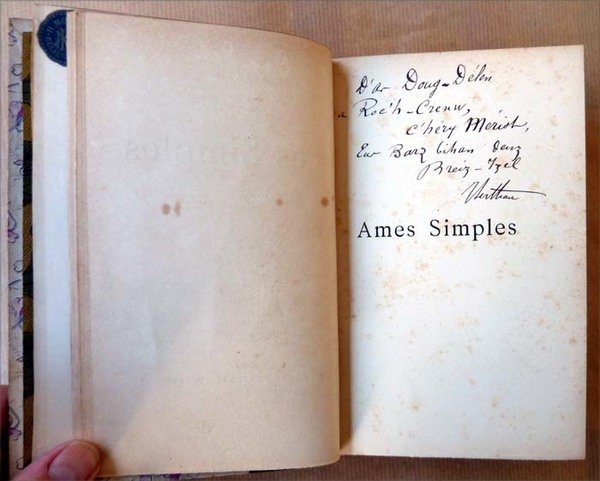 D'ar Doug-Délen
a Roc'h-Crenv,
c'hery Meriot,
Eur Barz bihan deuz
Breiz-Izel
Ames Simples